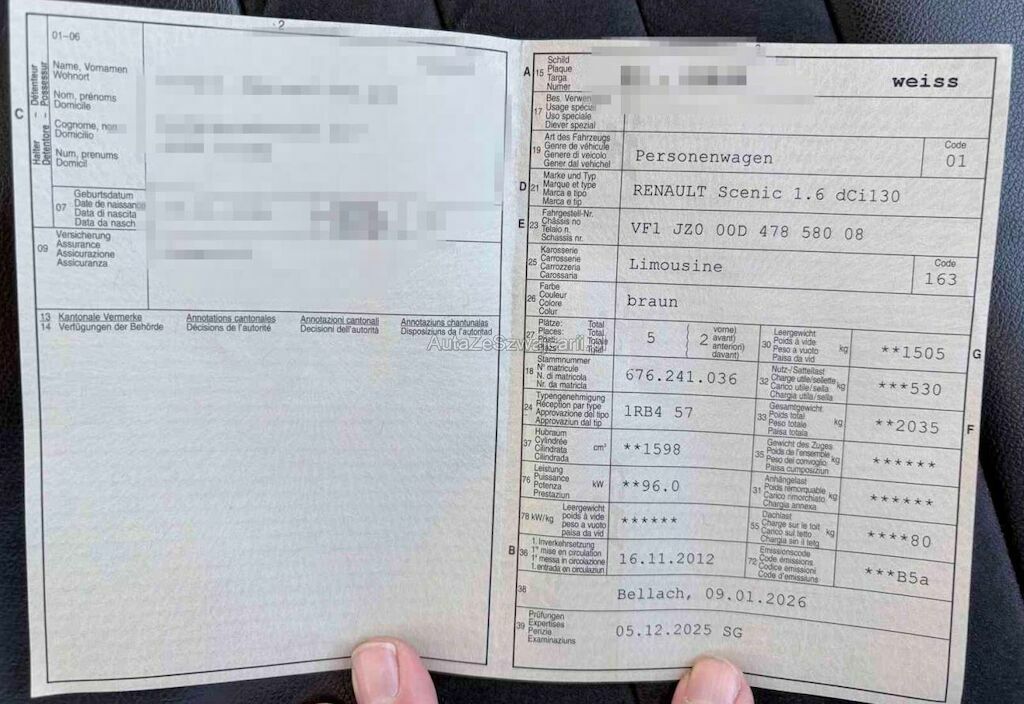 01-06
Name, Vornamen
Wohnort
Nom, prénoms
Domicile
Cognome, nomi
Domicilio
Num, prenums
Domicil
C
Halter Détenteur
Detentore Possessur
07
Geburtsdatum
Date de naissance
Data di nascita
Data da nasch
09
Versicherung
Assurance
Assicurazione
Assicuranza
13 Kantonale Vermerke
14 Verfügungen der Behörde
Annotations cantonales
Décisions de l'autorité
Annotazioni cantonali
Decisioni dell'autorità
Annotaziuns chantunalas
Disposiziuns da l'autoritad
A 15
Schild
Plaque
Targa
Numer
weiss
17
Bes. Verwen
Usage spécial
Uso speciale
Diever spezial
19
Art des Fahrzeugs
Genre de véhicule
Genere di veicolo
Gener dal vehichel
Personenwagen
Code
01
D 21
Marke und Typ
Marque et type
Marca e tipo
Marca e tip
RENAULT Scenic 1.6 dCi130
E 23
Fahrgestell-Nr.
Châssis no
Telaio n.
Schassis nr.
VF1 JZ0 00D 478 580 08
25
Karosserie
Carrosserie
Carrozzeria
Carossaria
Limousine
Code
163
26
Farbe
Couleur
Colore
Colur
braun
27
Plätze: Total
Places: Total
Totale
Total
5 { 2
vorne)
avant)
anteriori)
davant)
30
Leergewicht
Poids à vide
Peso a vuoto
Paisa da vid
kg
**1505
G
AutaZeSzwajcarii.pl
18
Stammnummer
N° matricule
N. di matricola
Nr. da matricla
676.241.036
32
Nutz-/Sattellast
Charge utile/sellette
Carico utile/sella
Chargia utila/sella
kg
***530
24
Typengenehmigung
Réception par type
Approvazione del tipo
Approvaziun dal tip
1RB4 57
33
Gesamtgewicht
Poids total
Peso totale
Paisa totala
kg
**2035
F
37
Hubraum
Cylindrée
Cilindrata
Cilindrada
cm³
**1598
35
Gewicht des Zuges
Poids de l'ensemble
Peso del convoglio
Paisa cumposiziun
kg
******
76
Leistung
Puissance
Potenza
Prestaziun
kW
**96.0
31
Anhängelast
Poids remorquable
Carico rimorchiato
Chargia annexa
kg
******
78 kW/kg
Leergewicht
poids à vide
peso a vuoto
paisa da vid
******
55
Dachlast
Charge sur le toit
Carico sul tetto
Chargia sin il tetg
kg
****80
B 36
1. Inverkehrsetzung
1re mise en circulation
1a messa in circolazione
1. entrada en circulaziun
16.11.2012
72
Emissionscode
Code émissions
Codice emissioni
Code d'emissiuns
***B5a
38
Bellach, 09.01.2026
39
Prüfungen
Expertises
Perizie
Examinaziuns
05.12.2025 SG